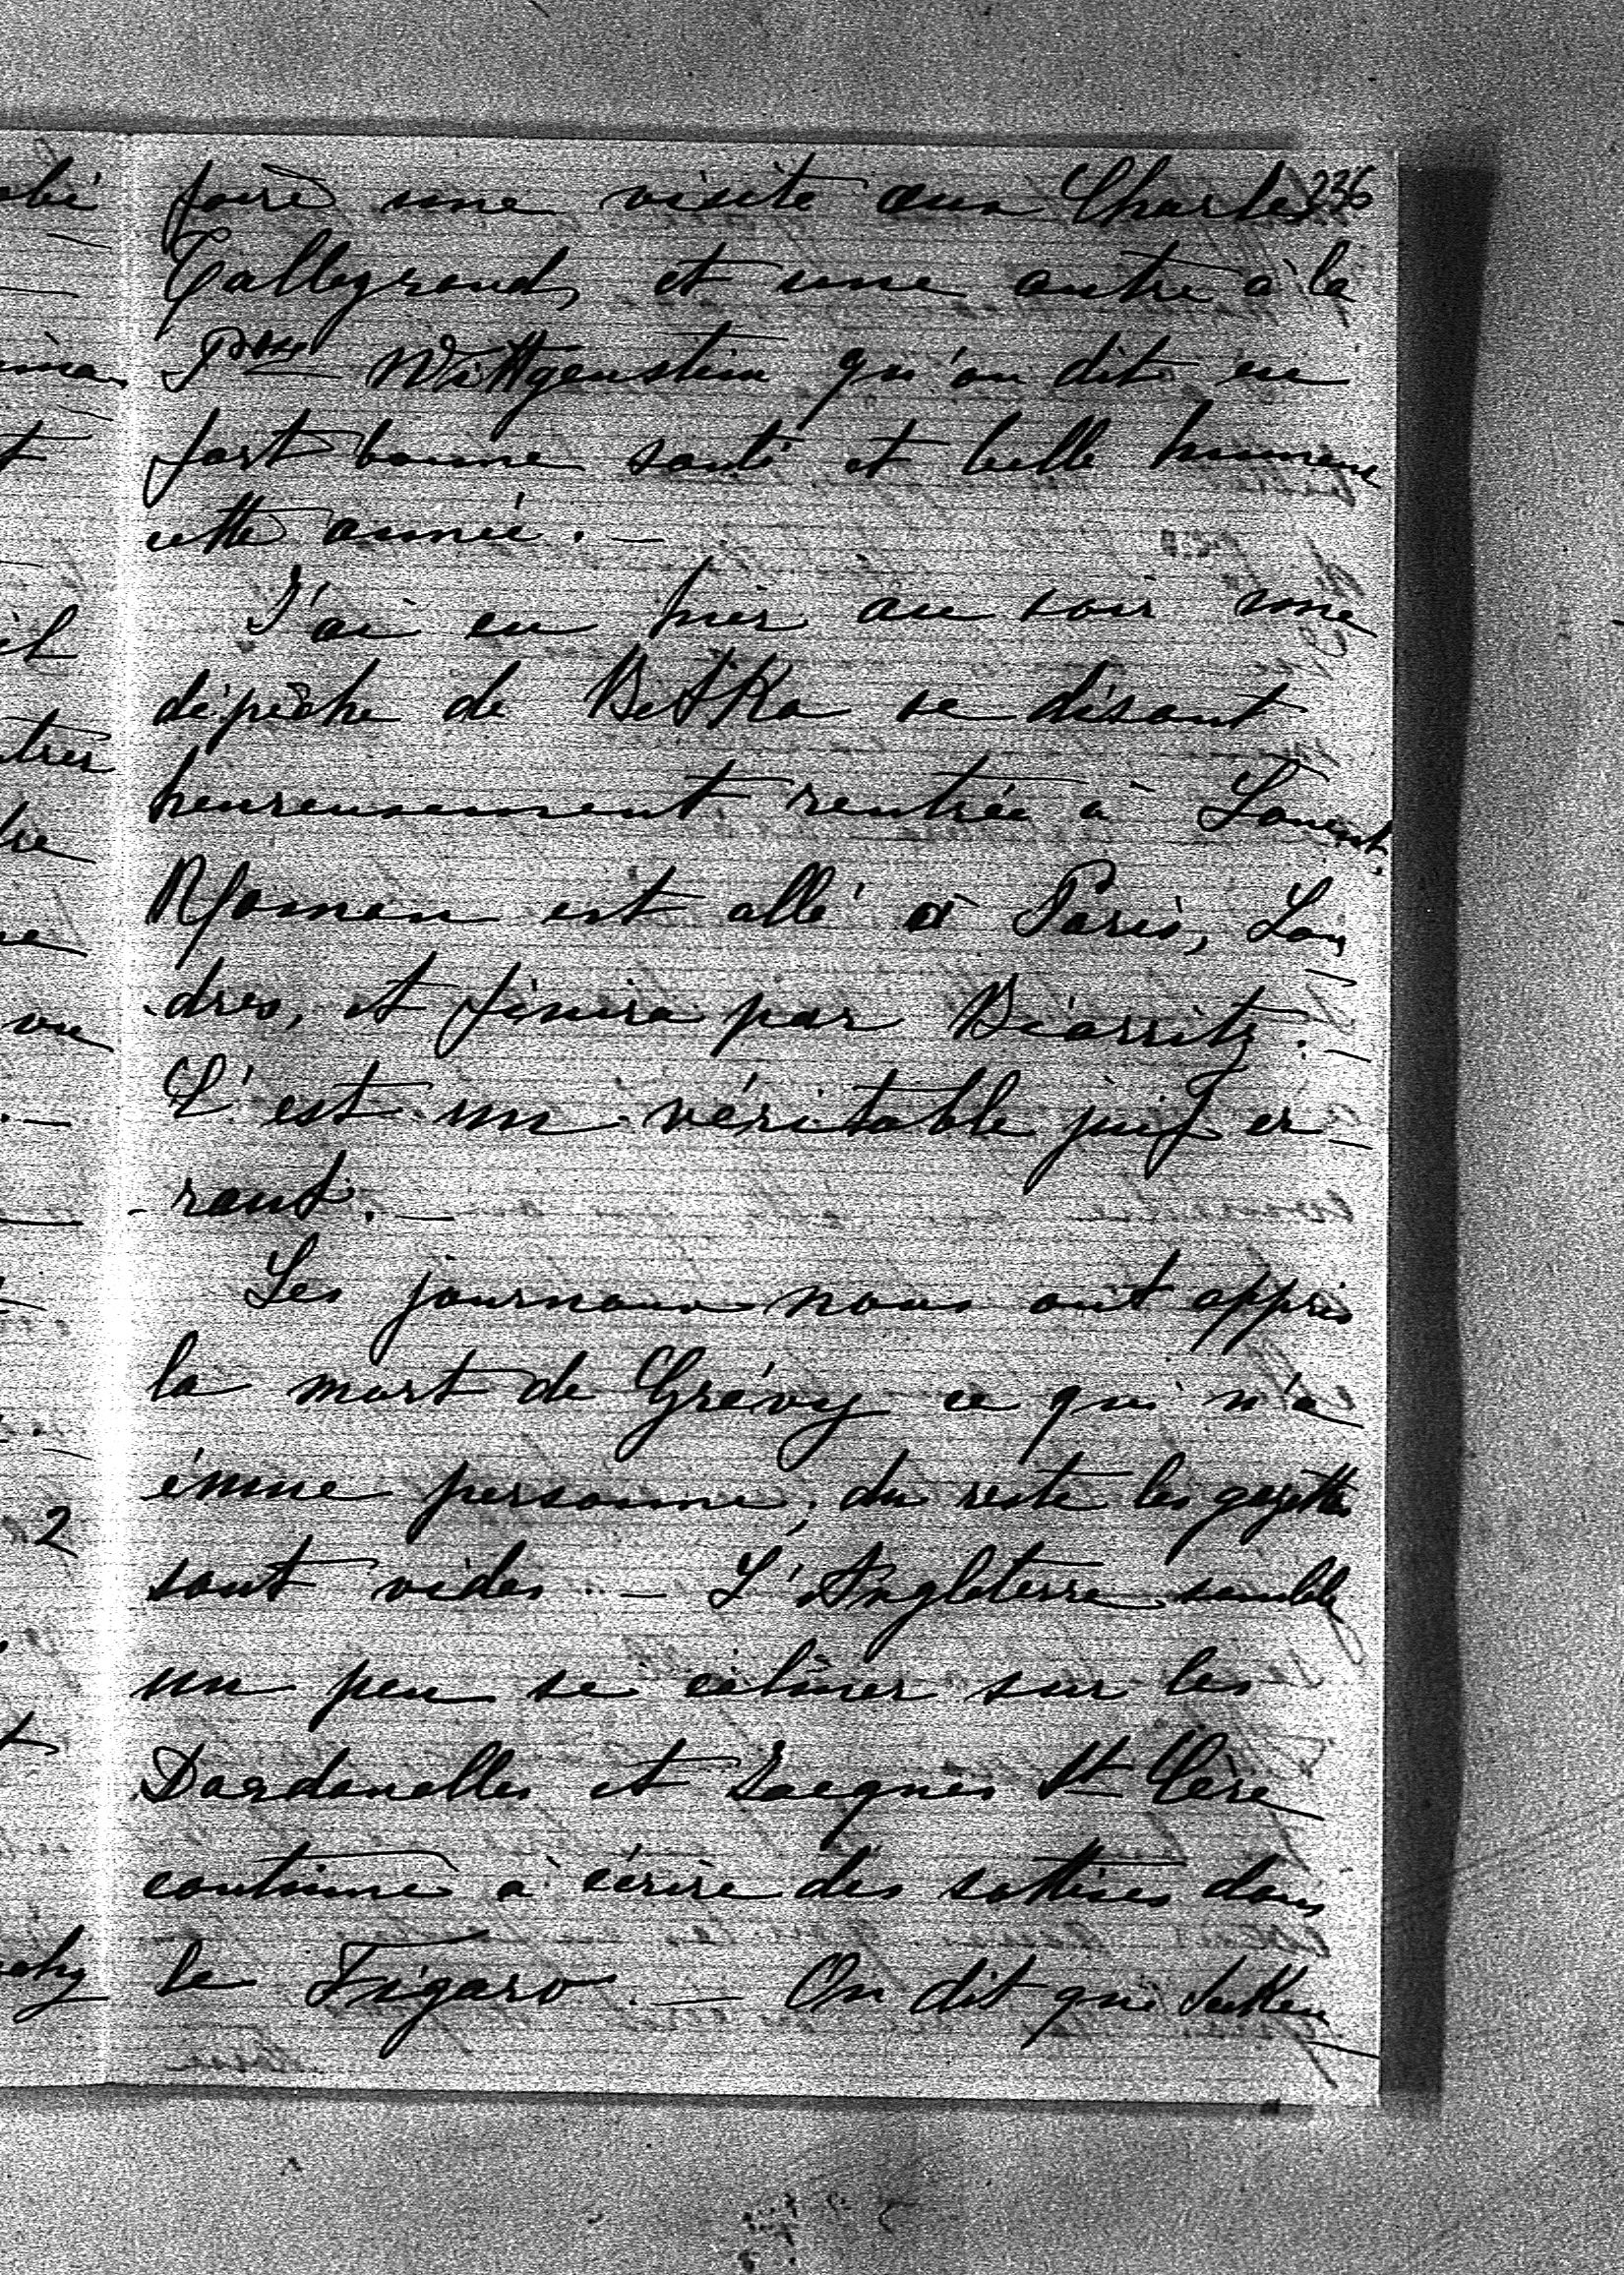 236
faire une visite aux Charles
Talleyrand, et une autre à la
Pcesse Wittgenstein qu'on dit en
fort bonne santé et belle humeur
cette année. —
J'ai eu hier au soir une
dépêche de Betka se disant
heureusement rentrée à
Roman est allé à Paris, Lon
dres, et finira par Biarritz. —
C'est un véritable juif er
- rant. —
Les journaux nous ont appris
la mort de Grévy ce qui n'a
émue personne; du reste les gazettes
sont vides. — L'Angleterre semble
un peu se calmer sur les
Dardanelles et Jacques St Cère
continue à écrire des sottises dans
le Figaro. — On dit que